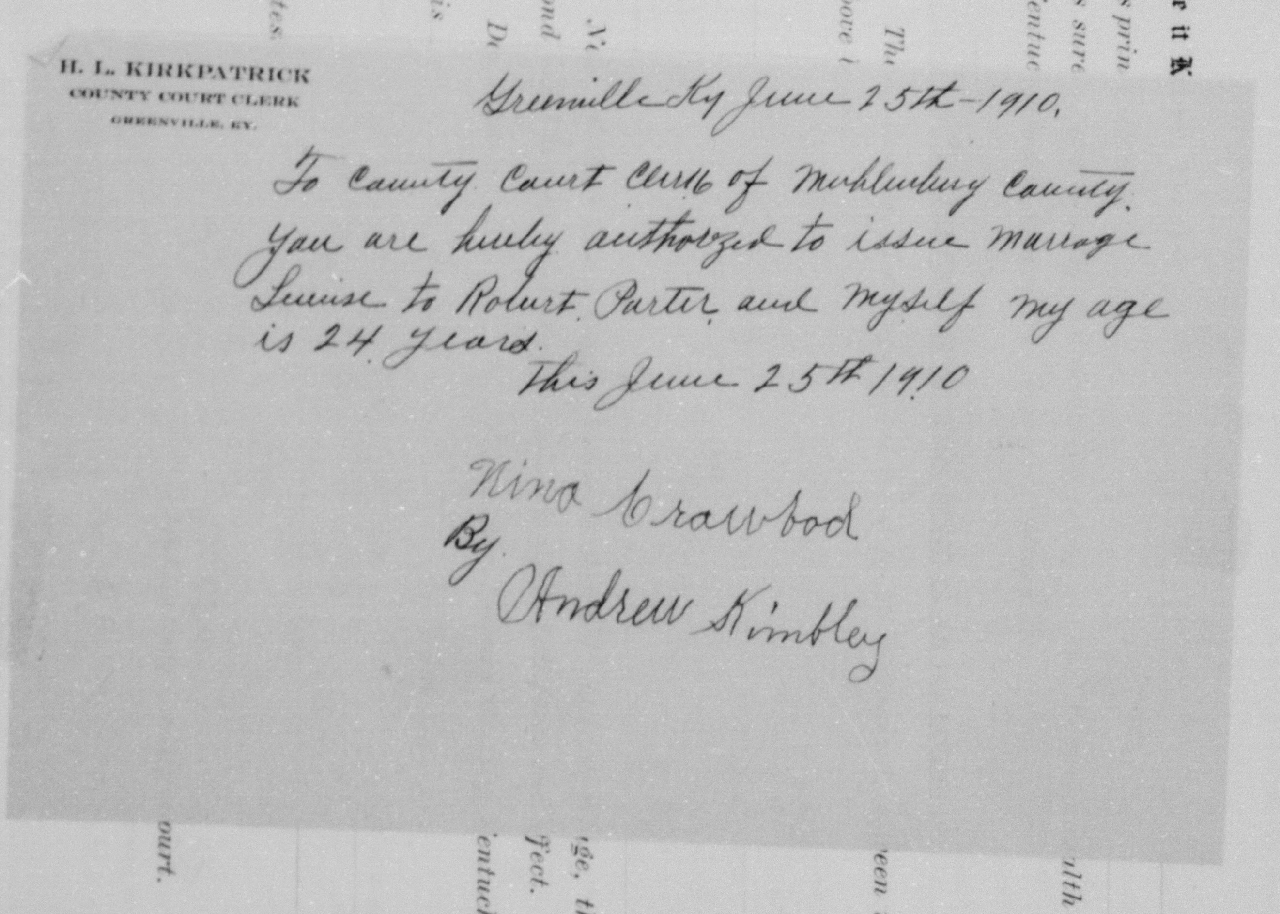 H. L. KIRKPATRICK
COUNTY COURT CLERK
GREENVILLE, KY.
Greenville Ky June 25th-1910.
To County Court Clerk of Muhlenburg County.
You are hereby authorzed to issue Marrage
Lisense to Robert Parter and Myself My age
is 24 years.
This June 25th 1910
Nina Crawbod
By
Andrew Kimbley